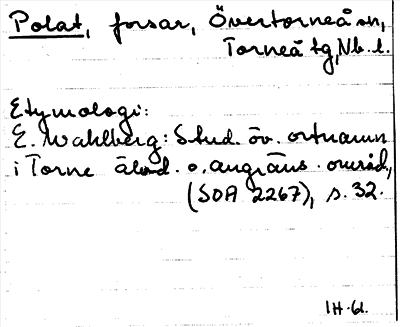 Polat, forsar, Övertorneå sn,
Torneå tg, Nb. l.
Etymologi:
E. Wahlberg: Stud. öv. ortnamn
i Torne älvd. o. angräns. områd.,
(SOA 2267), s. 32.
IH-61.